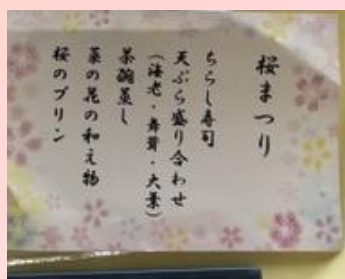 桜まつり
ちらし寿司
天ぷら盛り合わせ
(海老・舞茸・大葉)
茶碗蒸し
菜の花の和え物
桜のプリン